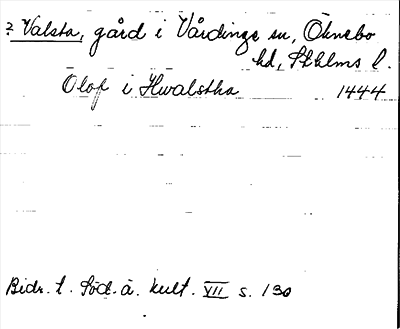 ? Valsta, gård i Vårdinge sn, Öknebo
hd, Sthlms l.
Olof i Hwalstha 1444
Bidr. t. Söd. ä. kult. VII s. 130